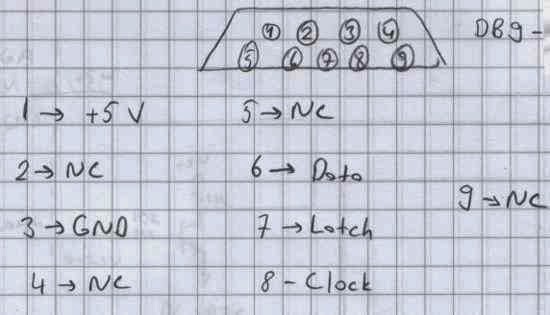 1 2 3 4 DB9-
5 6 7 8 9
1 → +5 V 5 → NC
2 → NC 6 → Data
9 → NC
3 → GND 7 → Latch
4 → NC 8 - Clock